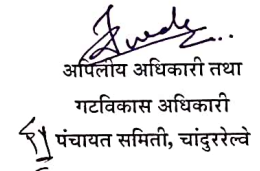 अपिलीय अधिकारी तथा
गटविकास अधिकारी
पंचायत समिती, चांदुररेल्वे